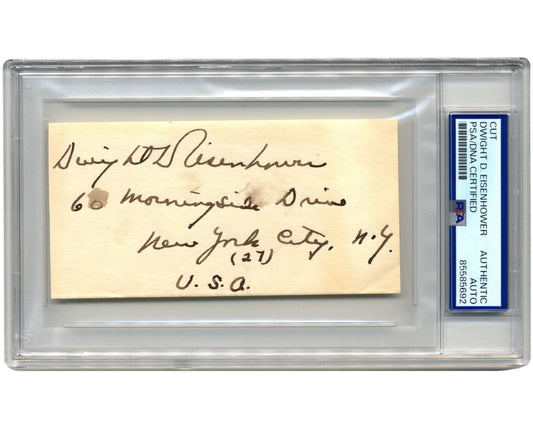 Dwight D Eisenhower
60 Morningside Drive
New York City, N.Y.
(27)
U.S.A.
CUT
DWIGHT D. EISENHOWER
PSA/DNA CERTIFIED
AUTHENTIC
AUTO
85585692
PSA